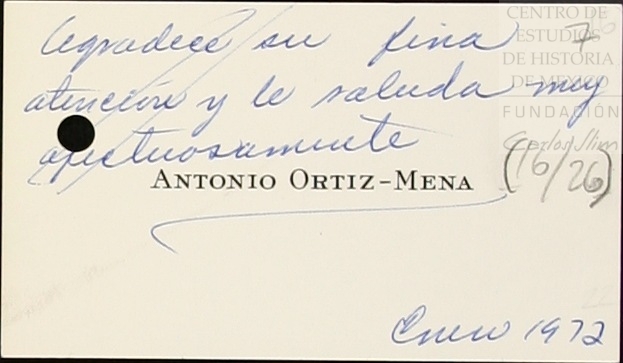 Agradece su fina 7
atención y le saluda muy
afectuosamente
ANTONIO ORTIZ-MENA
(16/26)
Enero 1972
CENTRO DE
ESTUDIOS
DE HISTORIA
DE MÉXICO
FUNDACIÓN
Carlos Slim